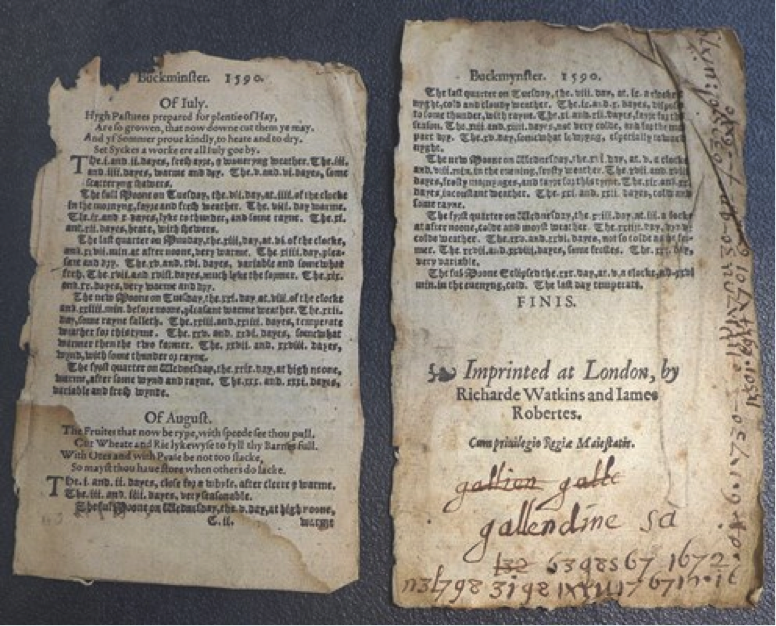 Buckminster. 1590.
Of Iuly.
Hygh Pastures prepared for plentie of Hay,
Are so growen, that now downe cut them ye may.
And yf Sommer prove kindly, to heate and to dry.
Set Syckes a worke ere all Iuly goe by.
The .i. and .ii. dayes, fresh ayre, & waueryng weather. The .iii.
and .iiii. dayes, warme and dry. The .v. and .vi. dayes, some
scatteryng showers.
The full Moone on Tuesday, the .vii. day, at .iiii. of the clocke
in the mornyng, fayre and fresh weather. The .viii. day, warme.
The .ix. and .x. dayes, lyke to thunder, and some rayne. The .xi.
and .xii. dayes, heate, with showers.
The last quarter on Munday, the .xiii. day, at .vi. of the clocke,
and .xvii. min. at after noone, very warme. The .xiiii. day, plea-
sant and dry. The .xv. and .xvi. dayes, variable and somewhat
fresh. The .xvii. and .xviii. dayes, much lyke the former. The .xix.
and .xx. dayes, very warme and dry.
The new Moone on Tuesday, the .xxi. day, at .viii. of the clocke
and .xliiii. min. before noone, pleasant warme weather. The .xxii.
day, some rayne falleth. The .xxiii. and .xxiiii. dayes, temperate
weather for this tyme. The .xxv. and .xxvi. dayes, somewhat
warmer then the two former. The .xxvii. and .xxviii. dayes,
wynd, with some thunder or rayne.
The fyrst quarter on Wednesday, the .xxix. day, at high noone,
warme, after some wynd and rayne. The .xxx. and .xxxi. dayes,
variable and fresh wynde.
Of August.
The Fruites that now be rype, with speede see thou pull.
Cut Wheate and Rie lykewyse to fyll thy Barnes full.
With Otes and with Pease be not too slacke,
So mayst thou haue store when others do lacke.
The .i. and .ii. dayes, close for a whyle, after cleere & warme.
The .iii. and .iiii. dayes, very seasonable.
The full Moone on Wednesday, the .v. day, at high noone,
C.ii. warme
Buckmynster. 1590.
The last quarter on Tuesday, the .viii. day, at .ix. a clocke
nyght, cold and cloudy weather. The .ix. and .x. dayes, dispos
to some thunder, with rayne. The .xi. and .xii. dayes, fayre for the
season. The .xiii. and .xiiii. dayes, not very colde, and for the most
part dry. The .xv. day, somewhat wynnyng, especially toward
nyght.
The new Moone on Wednesday, the .xvi. day, at .v. a clocke
and .viii. min. in the euenyng, frosty weather. The .xvii. and .xviii.
dayes, frosty mornynges, and fayre for this tyme. The .xix. and .xx.
dayes, inconstant weather. The .xxi. and .xxii. dayes, cold and
some rayne.
The fyrst quarter on Wednesday, the .xxiii. day, at .iii. a clocke
at after noone, colde and moyst weather. The .xxiiii. day, dry &
colde weather. The .xxv. and .xxvi. dayes, not so colde as the for-
mer. The .xxvii. and .xxviii. dayes, some frostes. The .xxix. day,
very variable.
The full Moone Eclipsed the .xxx. day, at .v. a clocke, and .xxvi
min. in the euenyng, cold. The last day temperate.
FINIS.
Imprinted at London, by
Richarde Watkins and Iames
Robertes.
Cum priuilegio Regiæ Maiestatis.
gallion galle
gallendine sa
132 6398567 1672